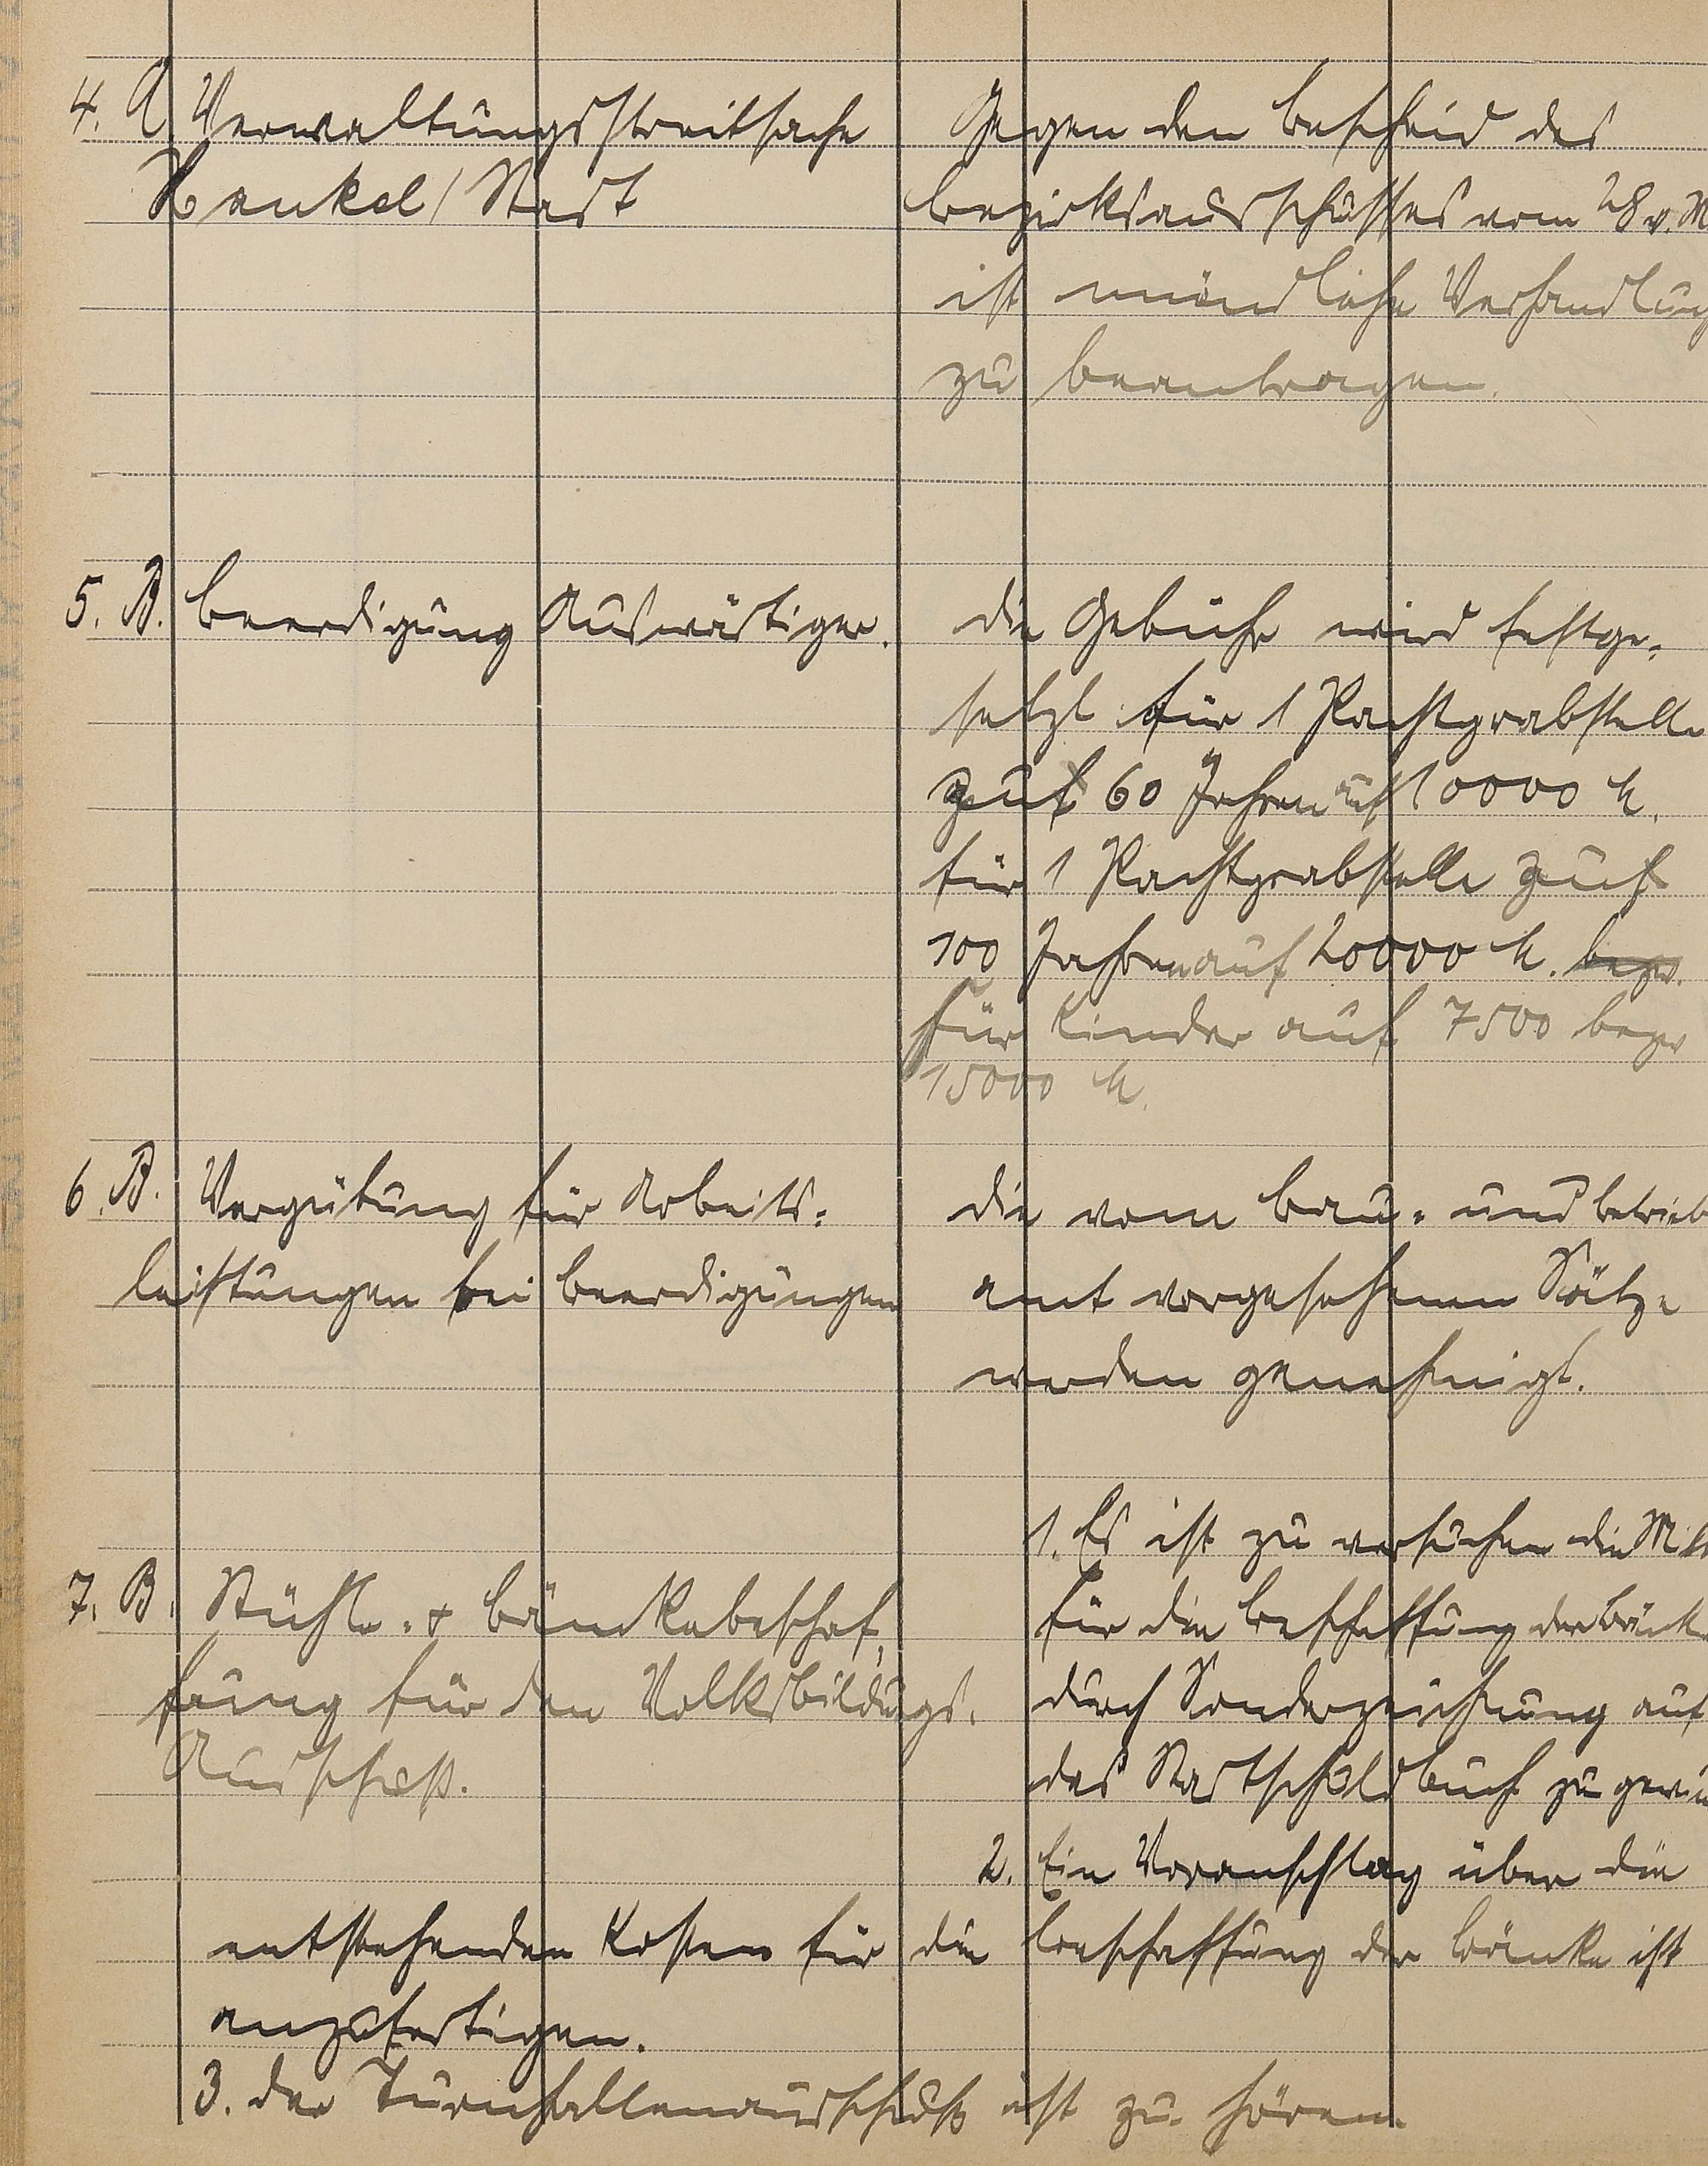 4. A. Verwaltungsstreitsache
Henkel / Stadt
Gegen den Bescheid des
Bezirksausschusses vom 28 v. M
ist mündliche Verhandlung
zu beantragen.
5. B. Beerdigung Auswärtiger.
Die Gebühr wird festge-
setzt für 1 Pachtgrabstelle
60 Jahren auf 10000 M.
für 1 Pachtgrabstelle
100 Jahren auf 20000 M. bezw.
für Kinder auf 7500 bezw
15000 M.
6. B. Vergütung für Arbeits-
leistungen bei Beerdigungen
Die vom Bau- und Betriebs
amt vorgesehenen Sätze
werden genehmigt.
7. B. Stühle- & Bänkebeschaf-
fung für den Volksbildungs-
Ausschuß.
1. Es ist zu versuchen die Mitt
für die Beschaffung der Bänke
durch Sonderzeichnung auf
das Stadtschuldbuch zu gewin
2. Ein Voranschlag über die
entstehenden Kosten für die Beschaffung der Bänke ist
anzufertigen.
3. Der Turnhallenausschuß ist zu hören.